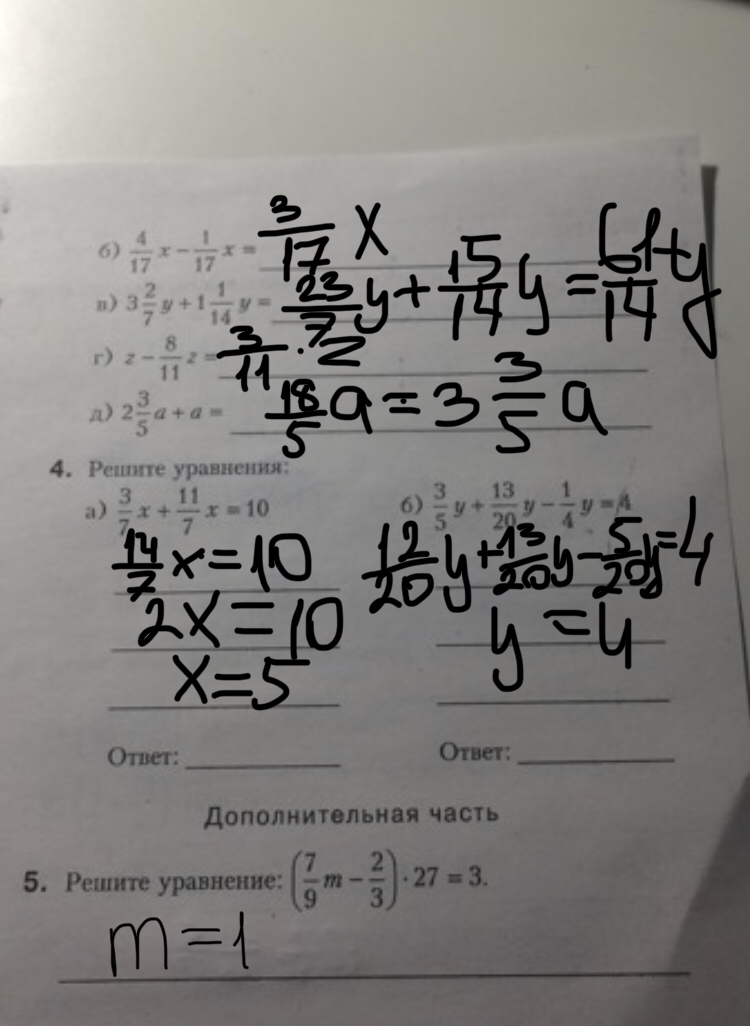 б) 4/17 x − 1/17 x = 3/17 x
в) 3 2/7 y + 1 1/14 y = 23/7 y + 15/14 y = 61/14 y
г) z − 8/11 z = 3/11 · z
д) 2 3/5 a + a = 18/5 a = 3 3/5 a
4. Решите уравнения:
а) 3/7 x + 11/7 x = 10
14/7 x = 10
2x = 10
x = 5
Ответ:
б) 3/5 y + 13/20 y − 1/4 y = 4
12/20 y + 13/20 y − 5/20 y = 4
y = 4
Ответ:
Дополнительная часть
5. Решите уравнение: (7/9 m − 2/3) · 27 = 3.
m = 1